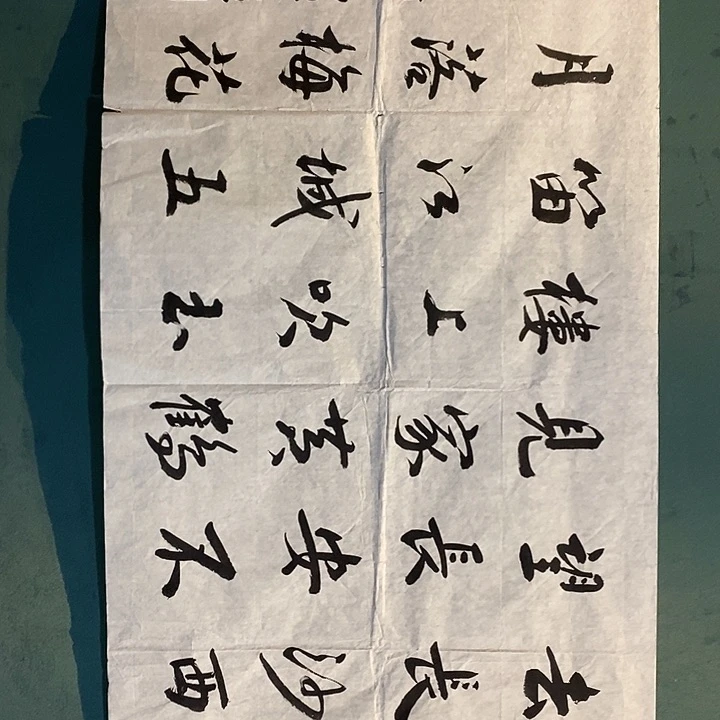 去長沙西
望長安不
見家黃鶴
樓上吹玉
笛江城五
月落梅花